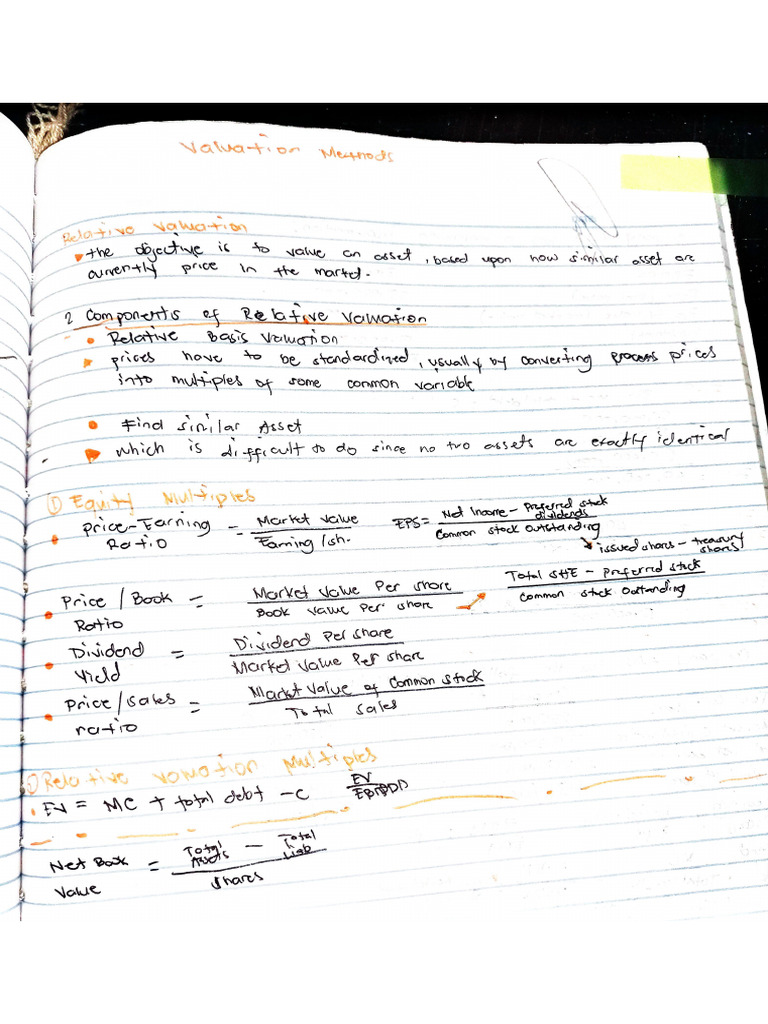 Valuation Methods
Relative Valuation
the objective is to value an asset, based upon how similar asset are
currently price in the market.
2 Components of Relative Valuation
Relative Basis Valuation
prices have to be standardized, usually by converting process prices
into multiples of some common variable
Find similar Asset
which is difficult to do since no two assets are exactly identical
① Equity Multiples
Price-Earning Ratio = Market Value / Earning/sh. EPS = Net Income - Preferred stock dividends / Common stock outstanding
issued shares - treasury shares
Price/Book Ratio = Market Value Per share / Book Value Per share
Total SHE - Preferred stock / Common stock Outstanding
Dividend Yield = Dividend Per share / Market Value Per share
Price/sales ratio = Market Value of Common Stock / Total sales
Relative Valuation Multiples
EV = MC + total debt - C EV
Net Book Value = Total Assets - Total Liab / shares